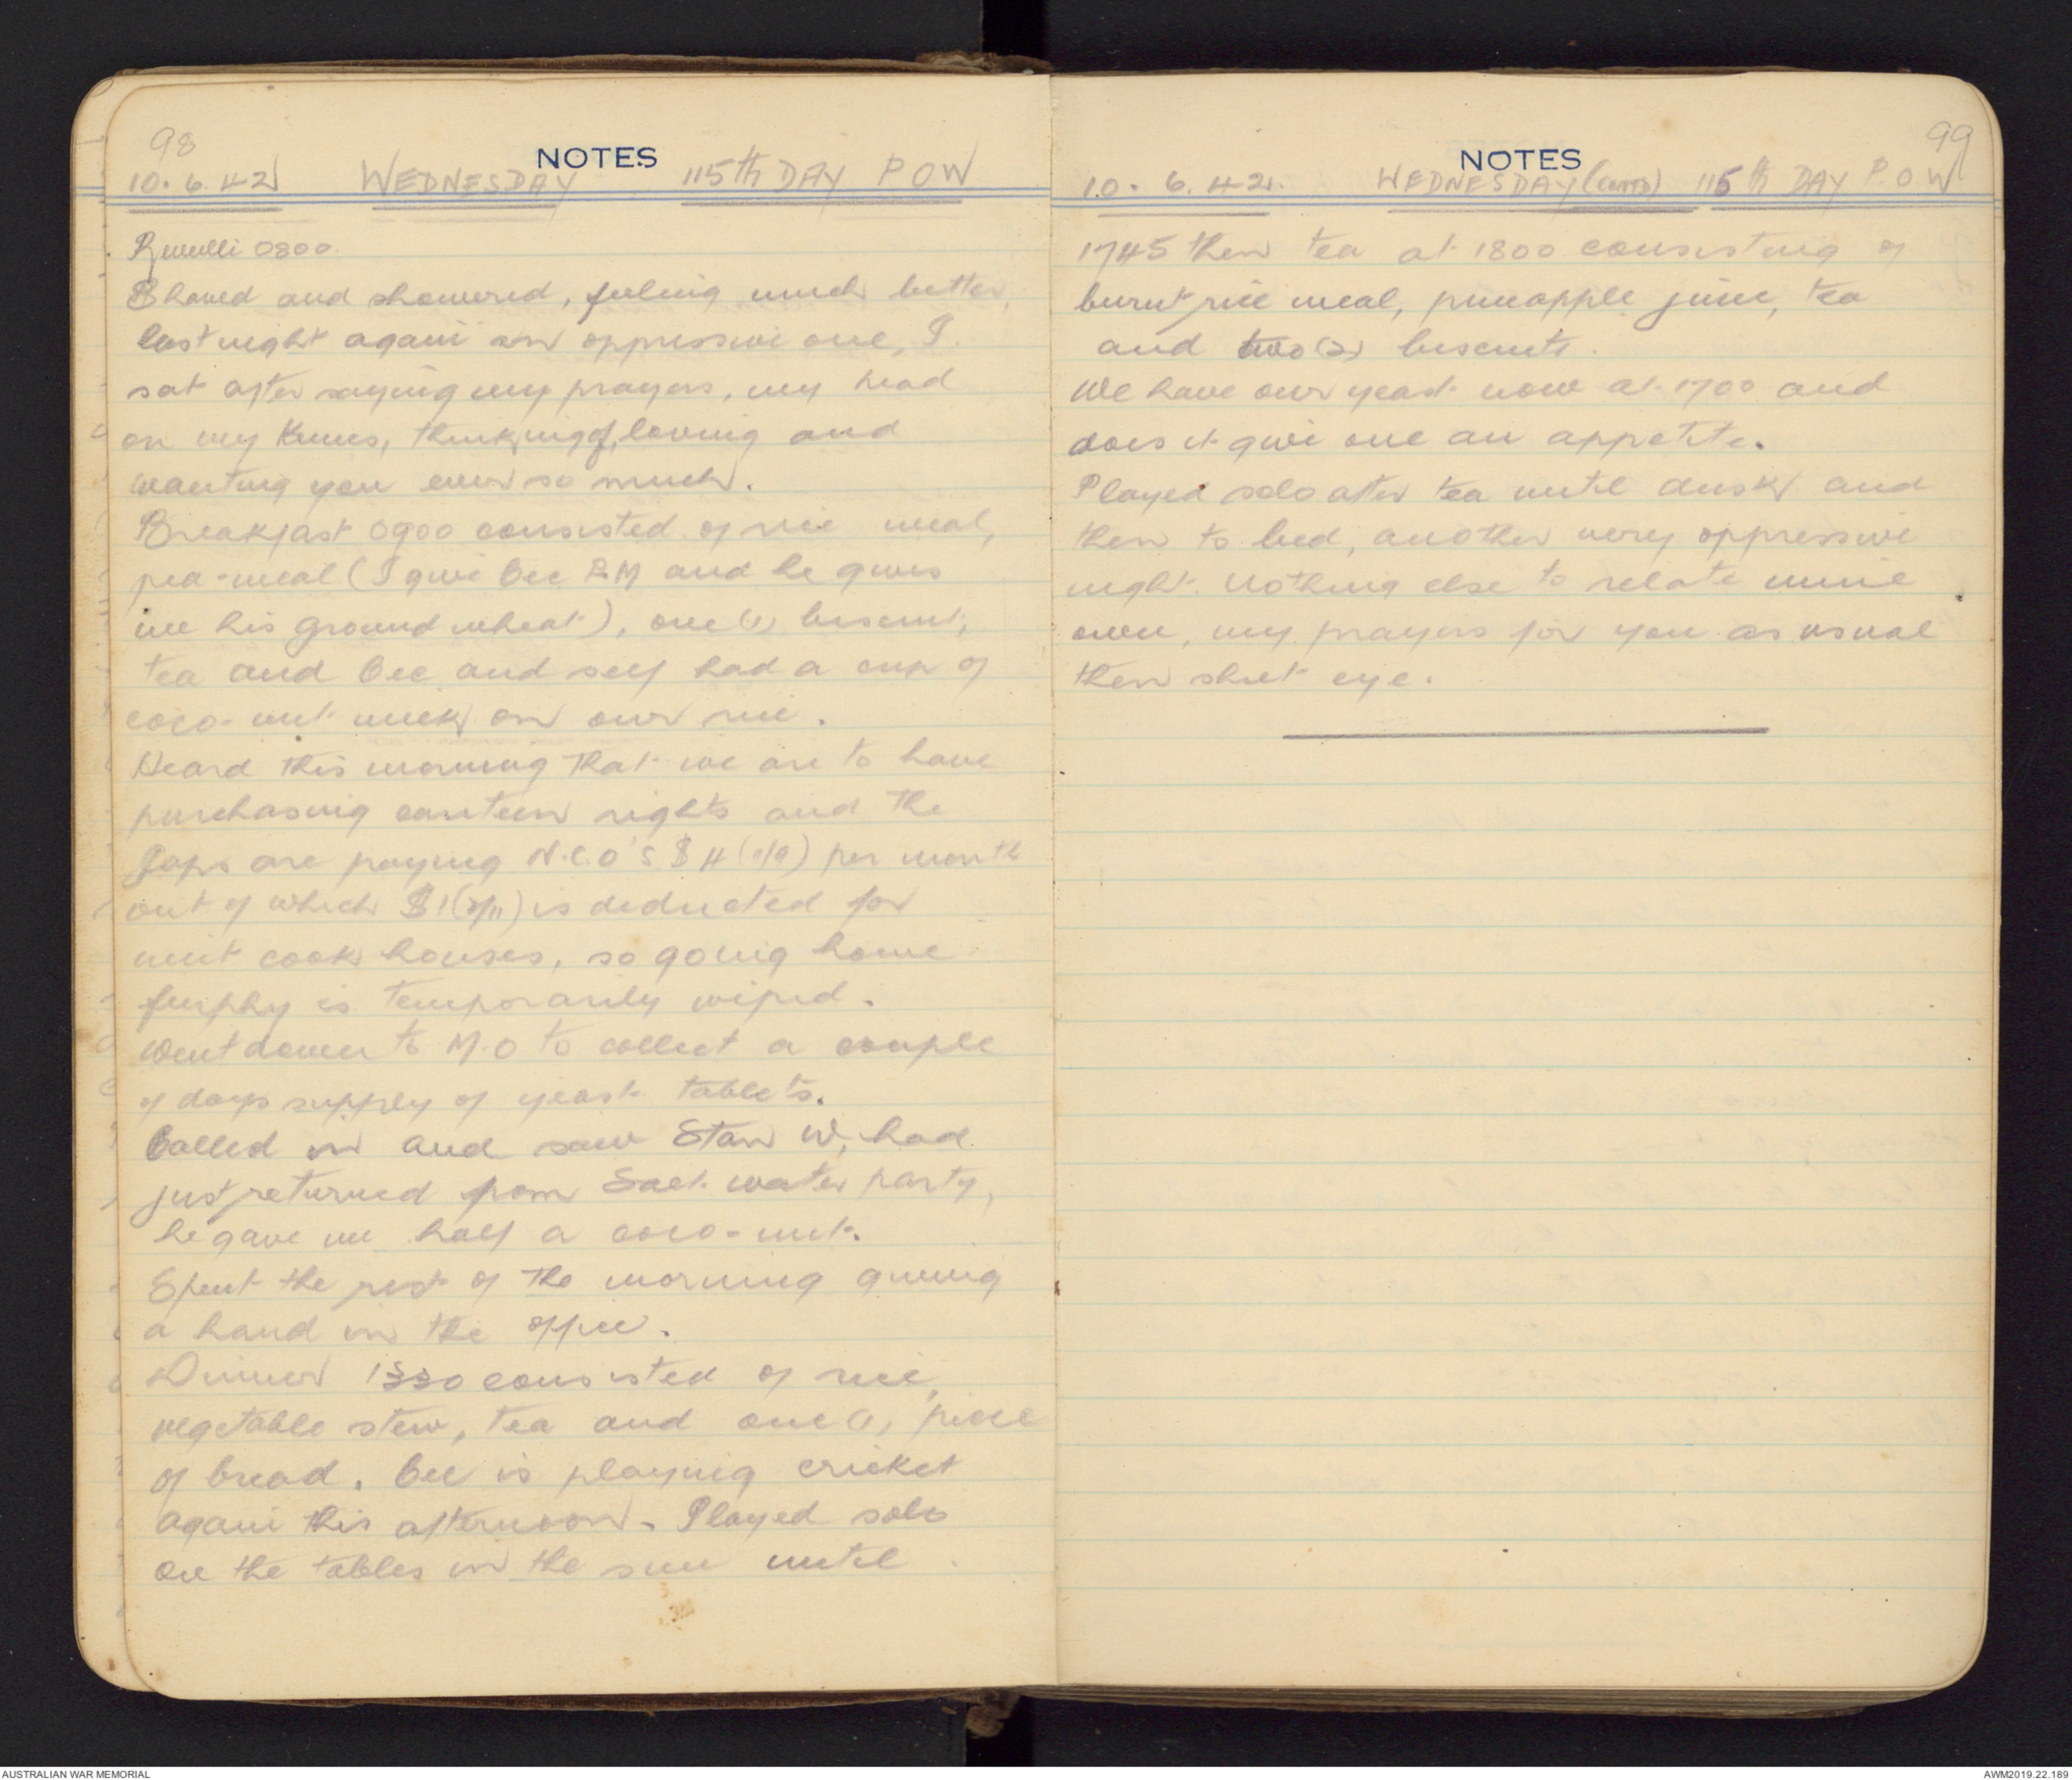 98
NOTES
10.6.42 WEDNESDAY 115th DAY P O W
Reveille 0800.
Shaved and showered, feeling much better,
last night again an oppressive one, I
sat after saying my prayers, my head
on my knees, thinking of, loving and
wanting you ever so much.
Breakfast 0900 consisted of rice meal,
pea-meal (I give Cec P.M and he gives
me his ground wheat), one (1) biscuit,
tea and Cec and self had a cup of
coco-nut milk on our rice.
Heard this morning that we are to have
purchasing canteen rights and the
Japs are paying N.C.O'S $4 ( ) per month
out of which $1 ( ) is deducted for
unit cook houses, so going home
furphy is temporarily wiped.
Went down to M.O to collect a couple
of days supply of yeast tablets.
Called in and saw Stan W, had
just returned from Salt water party,
he gave me half a coco-nut.
Spent the rest of the morning giving
a hand in the office.
Dinner 1330 consisted of rice,
vegetable stew, tea and one (1) piece
of bread. Cec is playing cricket
again this afternoon. Played solo
on the tables in the sun until
99
NOTES
10.6.42. WEDNESDAY (CONTD) 115th DAY P.O W
1745 then tea at 1800 consisting of
burnt rice meal, pineapple juice, tea
and two (2) biscuits.
We have our yeast now at 1700 and
does it give one an appetite.
Played solo after tea until dusk and
then to bed, another very oppressive
night. Nothing else to relate mine
own, my prayers for you as usual
then shut eye.
AUSTRALIAN WAR MEMORIAL
AWM2019.22.189